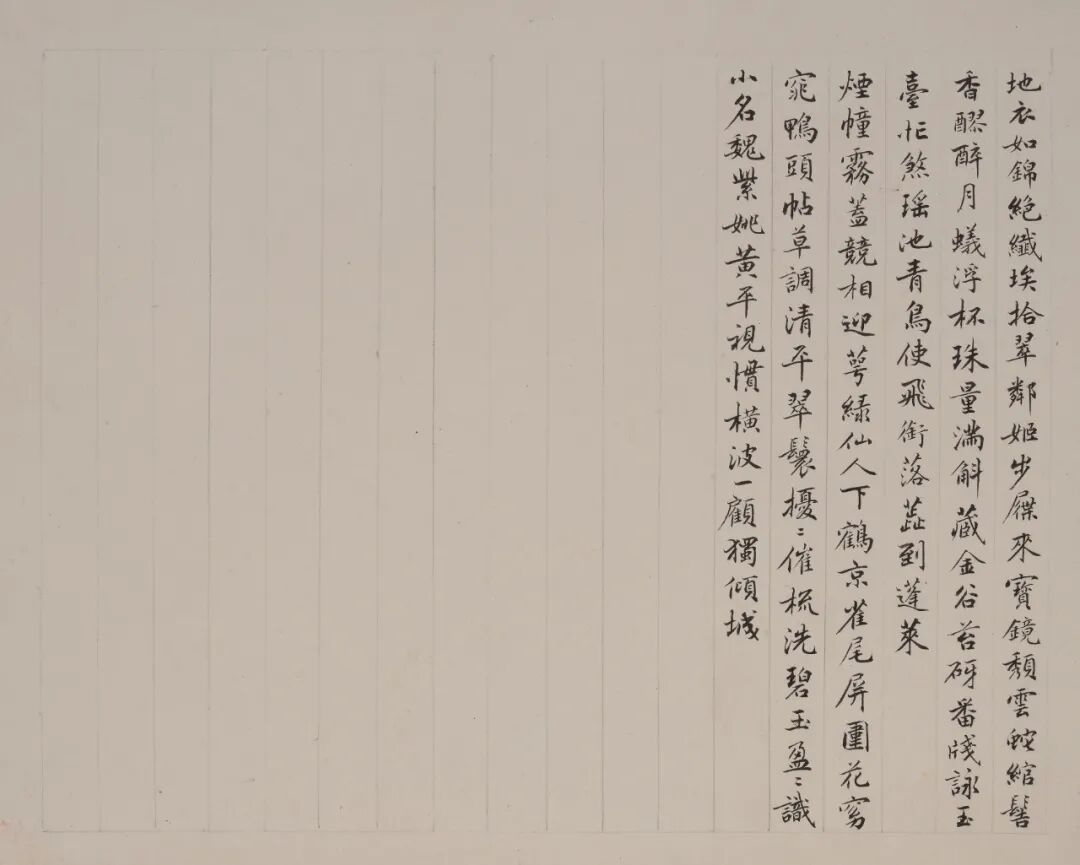 地衣如錦絕纖埃拾翠鄰姬步屧來寶鏡頹雲蛇綰髻
香醪醉月蟻浮杯珠量滿斛藏金谷苔砑番牋詠玉
臺忙煞瑶池青鳥使飛銜落蕋到蓬萊
煙幢霧蓋競相迎萼綠仙人下鶴京雀尾屏圍花窈
窕鴨頭帖草調清平翠鬟擾〻催梳洗碧玉盈〻識
小名魏紫姚黃平視慣橫波一顧獨傾城